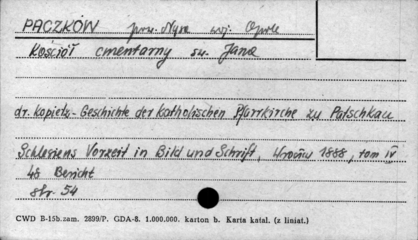 PACZKÓW pow. Nysa woj. Opole
Kościół cmentarny św. Jana
dr. Kopietz - Geschichte der Katholischen Pfarrkirche zu Patschkau
Schlesiens Vorzeit in Bild und Schrift, Wrocław 1888, tom IV
48 Bericht
str. 54
CWD B-15b. zam. 2899/P. GDA-8. 1.000.000. karton b. Karta katal. (z liniat.)